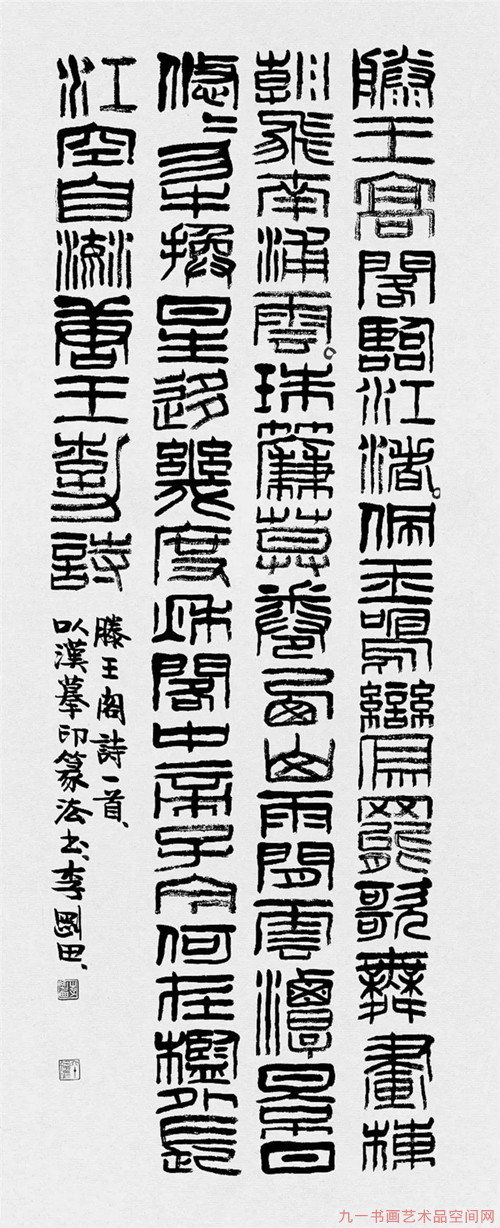 滕王高閣臨江渚。佩玉鳴鸞罷歌舞畫棟
朝飛南浦雲。珠簾暮捲西山雨閒雲潭影日
悠〻物換星移幾度秋閣中帝子今何在檻外長
江空自流唐王勃詩
滕王阁詩一首、
以漢摹印篆法书、李剛田、
九一书画艺术品空间网